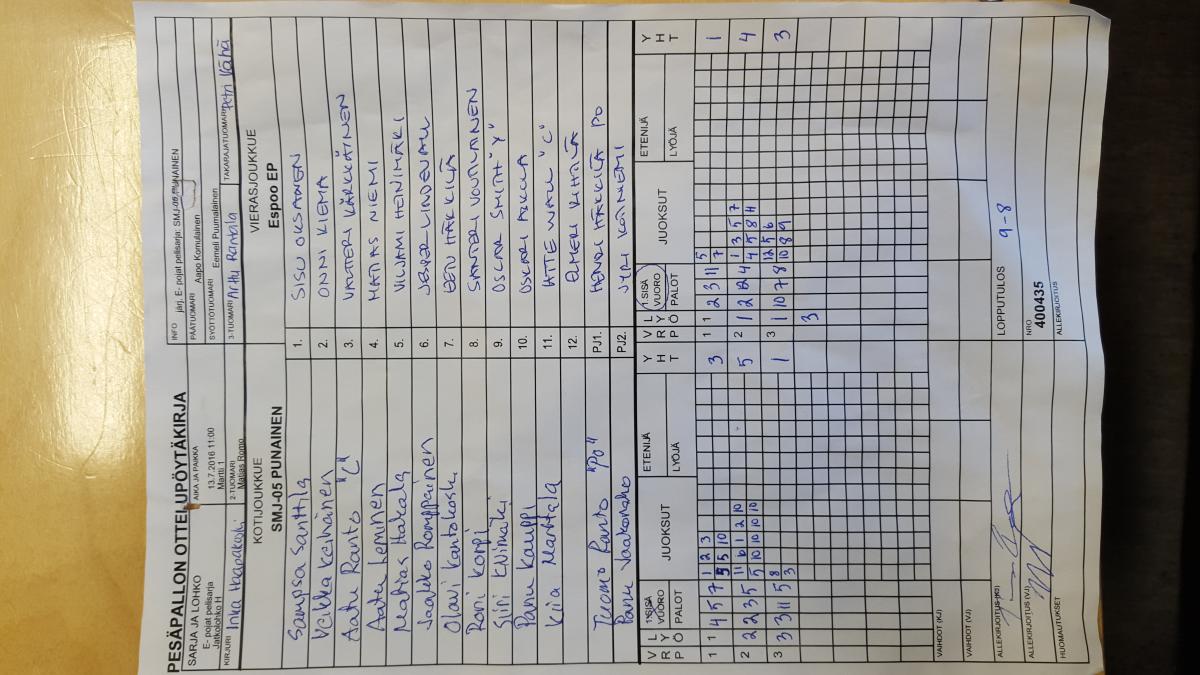 PESÄPALLON OTTELUPÖYTÄKIRJA
SARJA JA LOHKO
E- pojat pelisarja
Jatkolohko H
AIKA JA PAIKKA
13.7.2016 11:00
Martti 1
INFO järj. E- pojat pelisarja: SMJ-05 PUNAINEN
PÄÄTUOMARI Aapo Komulainen
SYÖTTÖTUOMARI Eemeli Puumalainen
KIRJURI Inka Haapakoski
2-TUOMARI
Matias Romo
3-TUOMARI Arttu Rantala
TAKARAJATUOMARI Petri Vähä
KOTIJOUKKUE
SMJ-05 PUNAINEN
VIERASJOUKKUE
Espoo EP
Sampsa Santtila 1. SISU OKSANEN
Veikka Keihänen 2. ONNI KIEMA
Aatu Ranto "C" 3. VALTTERI KÄRKKÄINEN
Aatu Leminen 4. MATIAS NIEMI
Matias Hakala 5. VILJAMI HEINIMÄKI
Jaakko Romppainen 6. JESPER LINDENAU
Olavi Kantokoski 7. EETU HÄKKILÄ
Roni Komppi 8. SANTERI VOUTILAINEN
Siiri Knimaki 9. OSCAR SMITH "Y"
Panu Kauppi 10. OSKARI
Kila Marttala 11. ATTE WALL "C"
12. ELMERI
Tuomo Ranto "PO" PJ1. HENRI HÄKKILÄ PO
Panu Jaakonaho PJ2. JYRI KOINIEMI
V L
R Y
P Ö
1 SISÄ
VUORO
PALOT
JUOKSUT
ETENIJÄ
LYÖJÄ
Y
H
T
V L
R Y
P Ö
1 SISÄ
VUORO
PALOT
JUOKSUT
ETENIJÄ
LYÖJÄ
Y
H
T
1 1 4 5 7 1 2 3 3 1 1 2 3 11 5 1
5 5 10 7
2 2 2 3 5 11 6 2 10 5 2 1 2 12 4 1 3 5 7 4
5 10 10 10 4 5 8 11
3 3 3 11 5 8 1 3 1 10 7 8 12 5 6 3
3 10 8 9
3
VAIHDOT (KJ)
VAIHDOT (VJ)
LOPPUTULOS 9-8
ALLEKIRJOITUS (KJ)
ALLEKIRJOITUS (VJ)
NRO
400435
ALLEKIRJOITUS
HUOMAUTUKSET